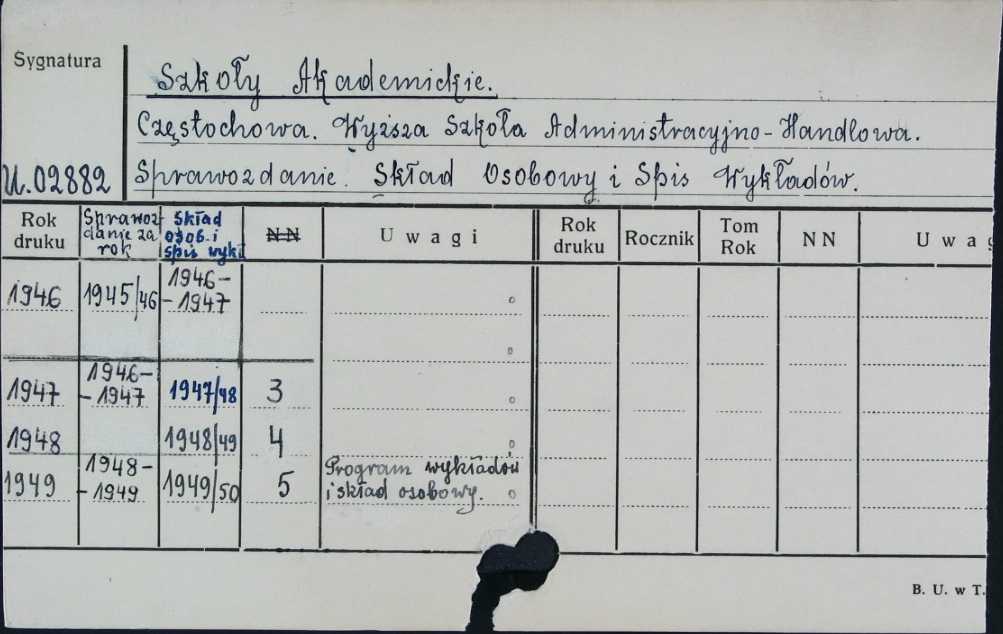 Sygnatura
Szkoły Akademickie.
Częstochowa. Wyższa Szkoła Administracyjno-Handlowa.
U.02882 Sprawozdanie. Skład Osobowy i Spis Wykładów.
Rok druku Sprawoz-danie za rok Skład osob. i spis wykł NN Uwagi Rok druku Rocznik Tom Rok NN Uwag
1946 1945/46 1946-
-1947
1947 1946-
-1947 1947/48 3
1948 1948/49 4
1949 1948-
-1949 1949/50 5 Program wykładów
i skład osobowy.
B. U. w T.